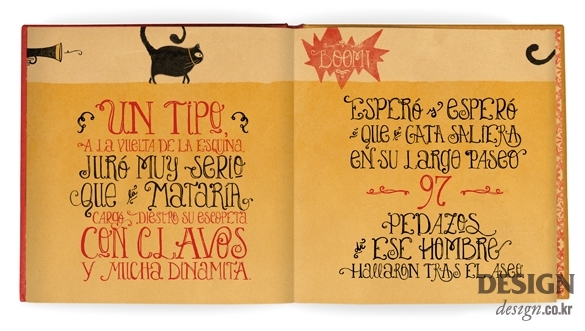 UN TIPO,
A LA VUELTA DE LA ESQUINA,
JURÓ MUY SERIO
QUE la MATARÍA.
CARGÓ, DIESTRO SU ESCOPETA
CON CLAVOS
Y MUCHA DINAMITA.
BOOM!
ESPERÓ y ESPERÓ
A QUE la GATA SALIERA
EN SU LARGO PASEO
97
PEDAZOS
de ESE HOMBRE
HALLARON TRAS EL ASEO.
DESIGN
design.co.kr